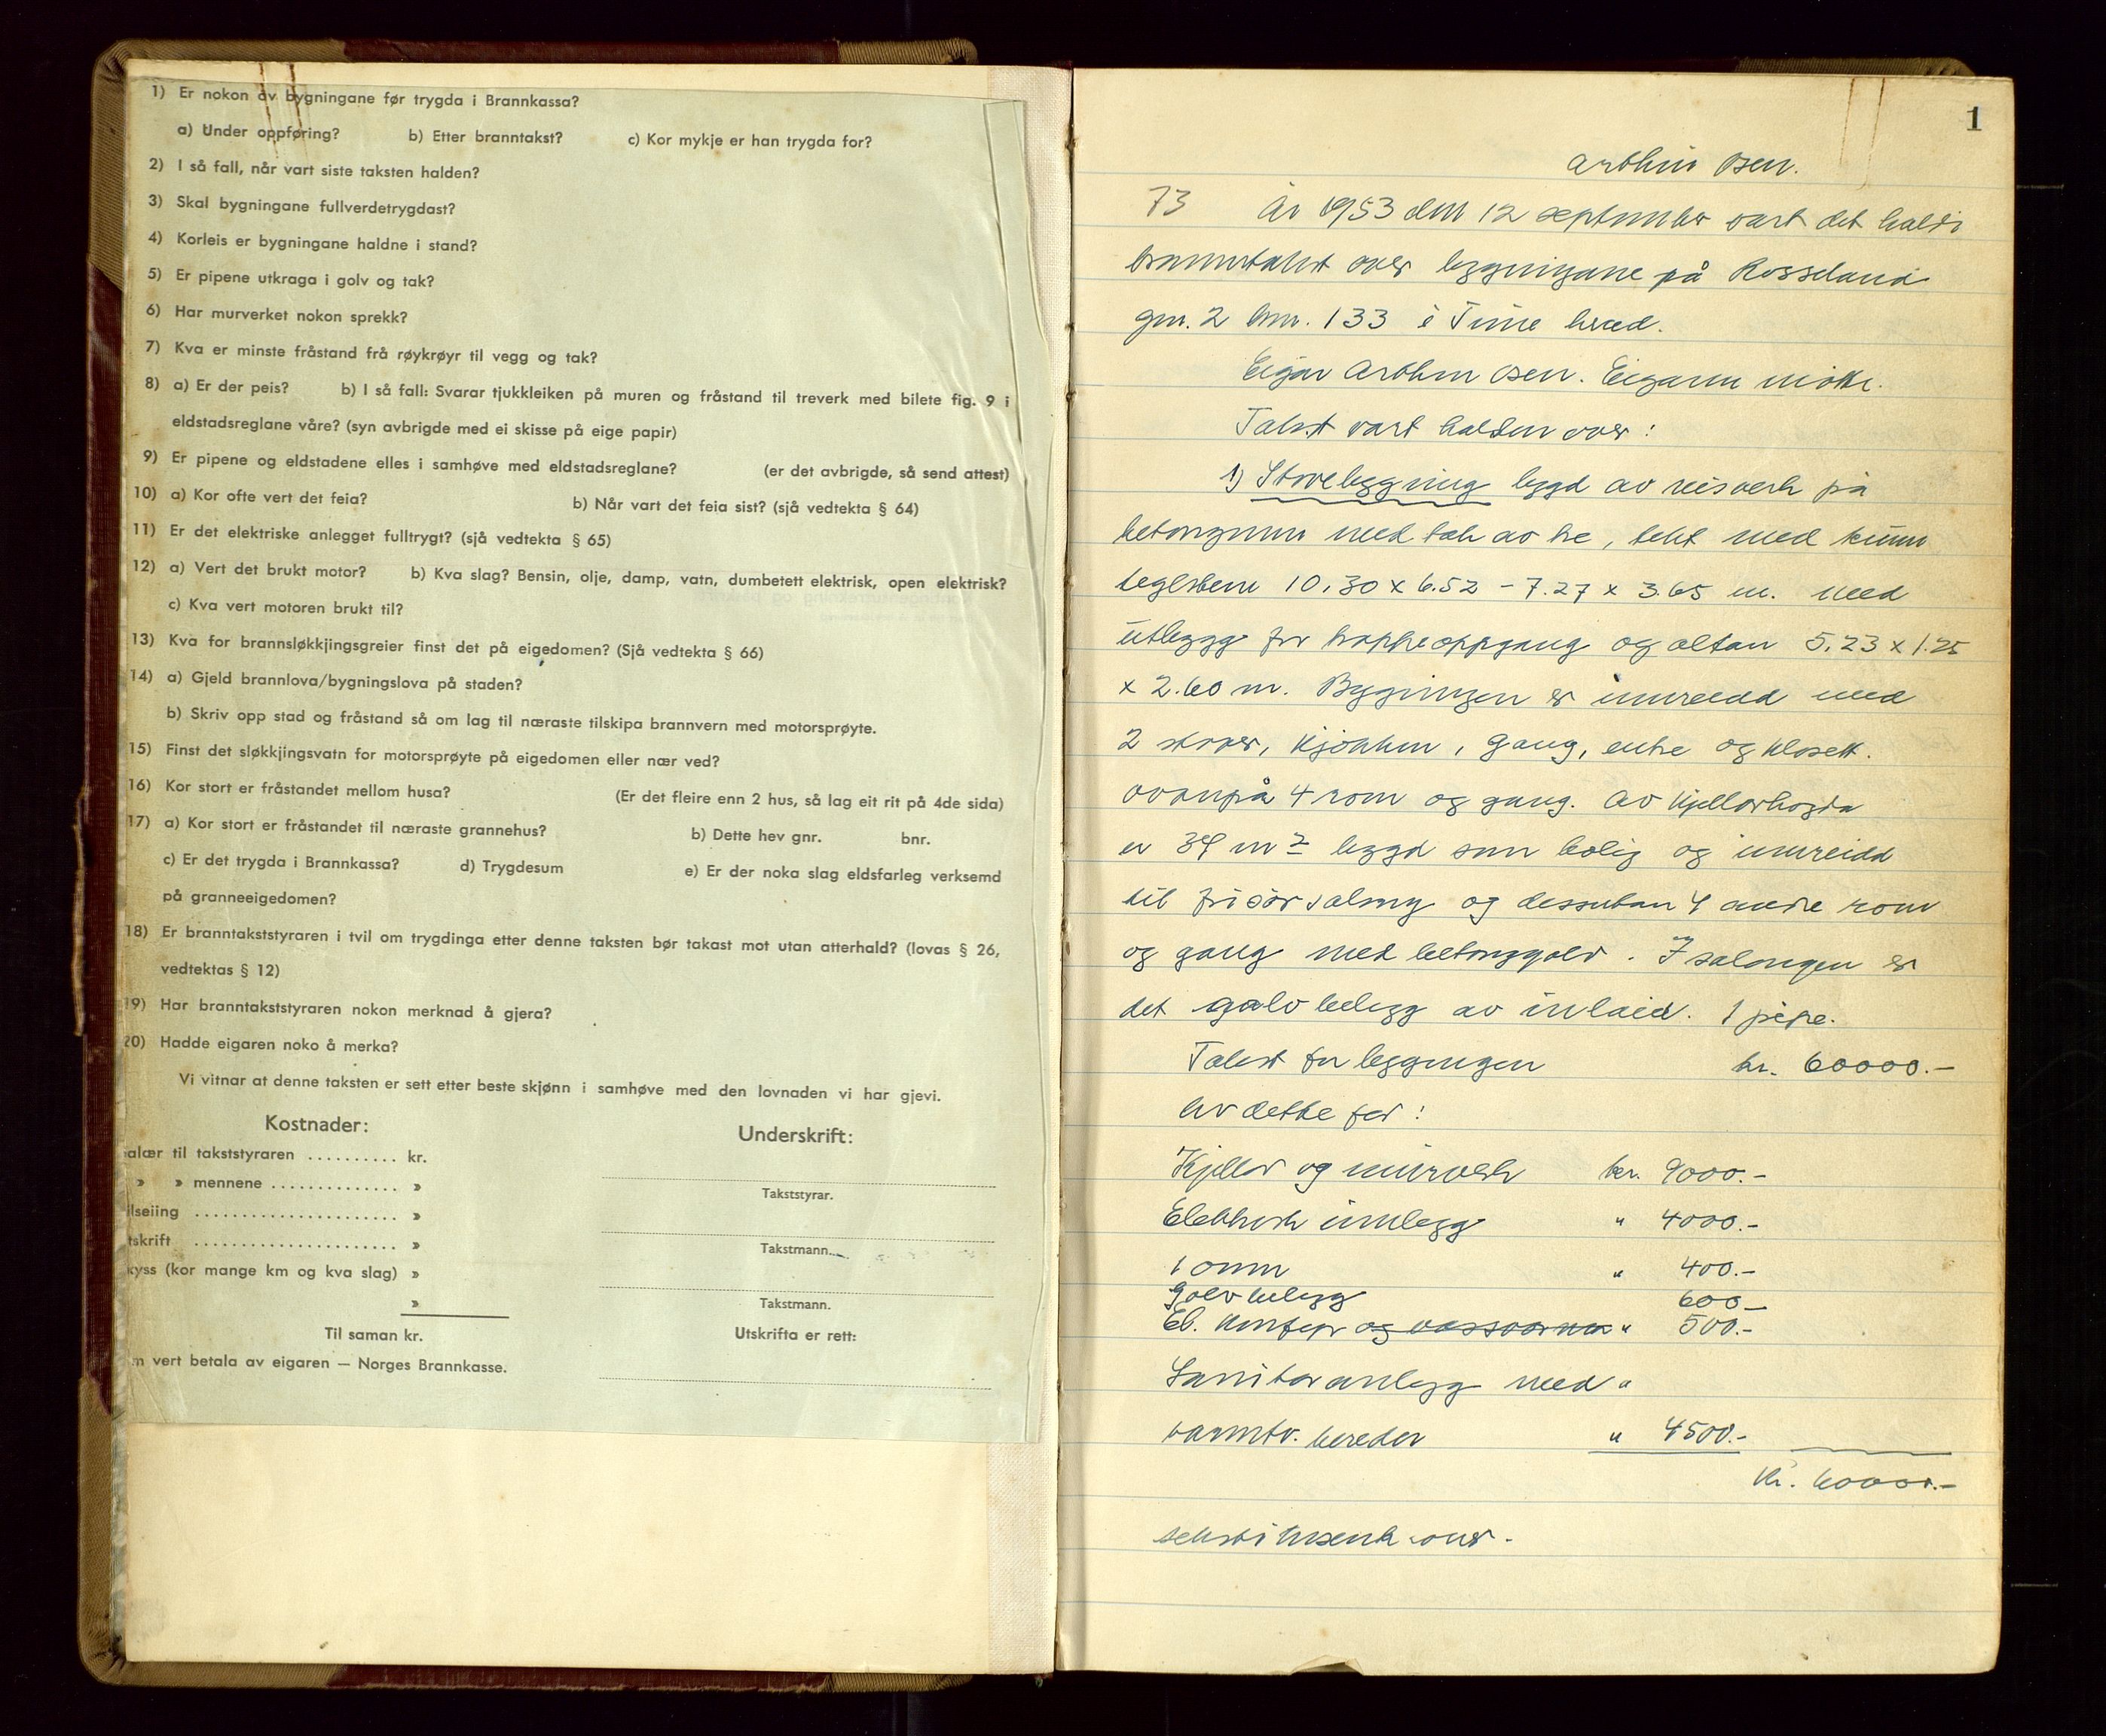 1) Er nokon av bygningane før trygda i Brannkassa?
a) Under oppføring? b) Etter branntakst? c) Kor mykje er han trygda for?
2) I så fall, når vart siste taksten halden?
3) Skal bygningane fullverdetrygdast?
4) Korleis er bygningane haldne i stand?
5) Er pipene utkraga i golv og tak?
6) Har murverket nokon sprekk?
7) Kva er minste fråstand frå røykrøyr til vegg og tak?
8) a) Er der peis? b) I så fall: Svarar tjukkleiken på muren og fråstand til treverk med bilete fig. 9 i
eldstadsreglane våre? (syn avbrigde med ei skisse på eige papir)
9) Er pipene og eldstadene elles i samhøve med eldstadsreglane? (er det avbrigde, så send attest)
10) a) Kor ofte vert det feia? b) Når vart det feia sist? (sjå vedtekta § 64)
11) Er det elektriske anlegget fulltrygt? (sjå vedtekta § 65)
12) a) Vert det brukt motor? b) Kva slag? Bensin, olje, damp, vatn, dumbetett elektrisk, open elektrisk?
c) Kva vert motoren brukt til?
13) Kva for brannsløkkjingsgreier finst det på eigedomen? (Sjå vedtekta § 66)
14) a) Gjeld brannlova/bygningslova på staden?
b) Skriv opp stad og fråstand så om lag til næraste tilskipa brannvern med motorsprøyte.
15) Finst det sløkkjingsvatn for motorsprøyte på eigedomen eller nær ved?
16) Kor stort er fråstandet mellom husa? (Er det fleire enn 2 hus, så lag eit rit på 4de sida)
17) a) Kor stort er fråstandet til næraste grannehus? b) Dette hev gnr. bnr.
c) Er det trygda i Brannkassa? d) Trygdesum e) Er der noka slag eldsfarleg verksemd
på granneeigedomen?
18) Er branntakststyraren i tvil om trygdinga etter denne taksten bør takast mot utan atterhald? (lovas § 26,
vedtektas § 12)
19) Har branntakststyraren nokon merknad å gjera?
20) Hadde eigaren noko å merka?
Vi vitnar at denne taksten er sett etter beste skjønn i samhøve med den lovnaden vi har gjevi.
Kostnader:
alær til takststyraren .......... kr.
» » mennene .............. »
ilseiing ....................... »
tskrift ....................... »
kyss (kor mange km og kva slag) »
»
Til saman kr.
m vert betala av eigaren — Norges Brannkasse.
Underskrift:
Takststyrar.
Takstmann.
Takstmann.
Utskrifta er rett:
1
Arthur Osen.
73 År 1953 den 12 september vart det haldi
branntakst over bygningane på Rosseland
gnr. 2 bnr. 133 i Time herad.
Eigar Arthur Osen. Eigaren møtte.
Takst vart halden over:
1) Stovebygning bygd av reisverk på
betongmur med tak av tre, tekt med
teglstein 10.30 x 6.52 - 7.27 x 3.65 m. med
utbygg for trappeoppgang og altan 5.23 x 1.25
x 2.60 m. Bygningen er innreidd med
2 stover, kjøkken, gang, entre og klosett.
ovanpå 4 rom og gang. Av kjellarhøgda
er 34 m2 bygd som bolig og innreidd
til frisørsalong og dessutan 4 andre rom
og gang med betonggolv. I salongen er
det golvbelegg av inlaid. 1 pipe.
Takst for bygningen kr. 60000.-
Av dette for:
Kjellar og murverk kr. 9000.-
Elektrisk innlegg " 4000.-
1 omn " 400.-
Golvbelegg 600.-
El. komfyr og vassvarmar " 500.-
Sanitæranlegg med "
varmtv. bereder " 4500.-
kr. 60000.-
seksti tusenkroner.